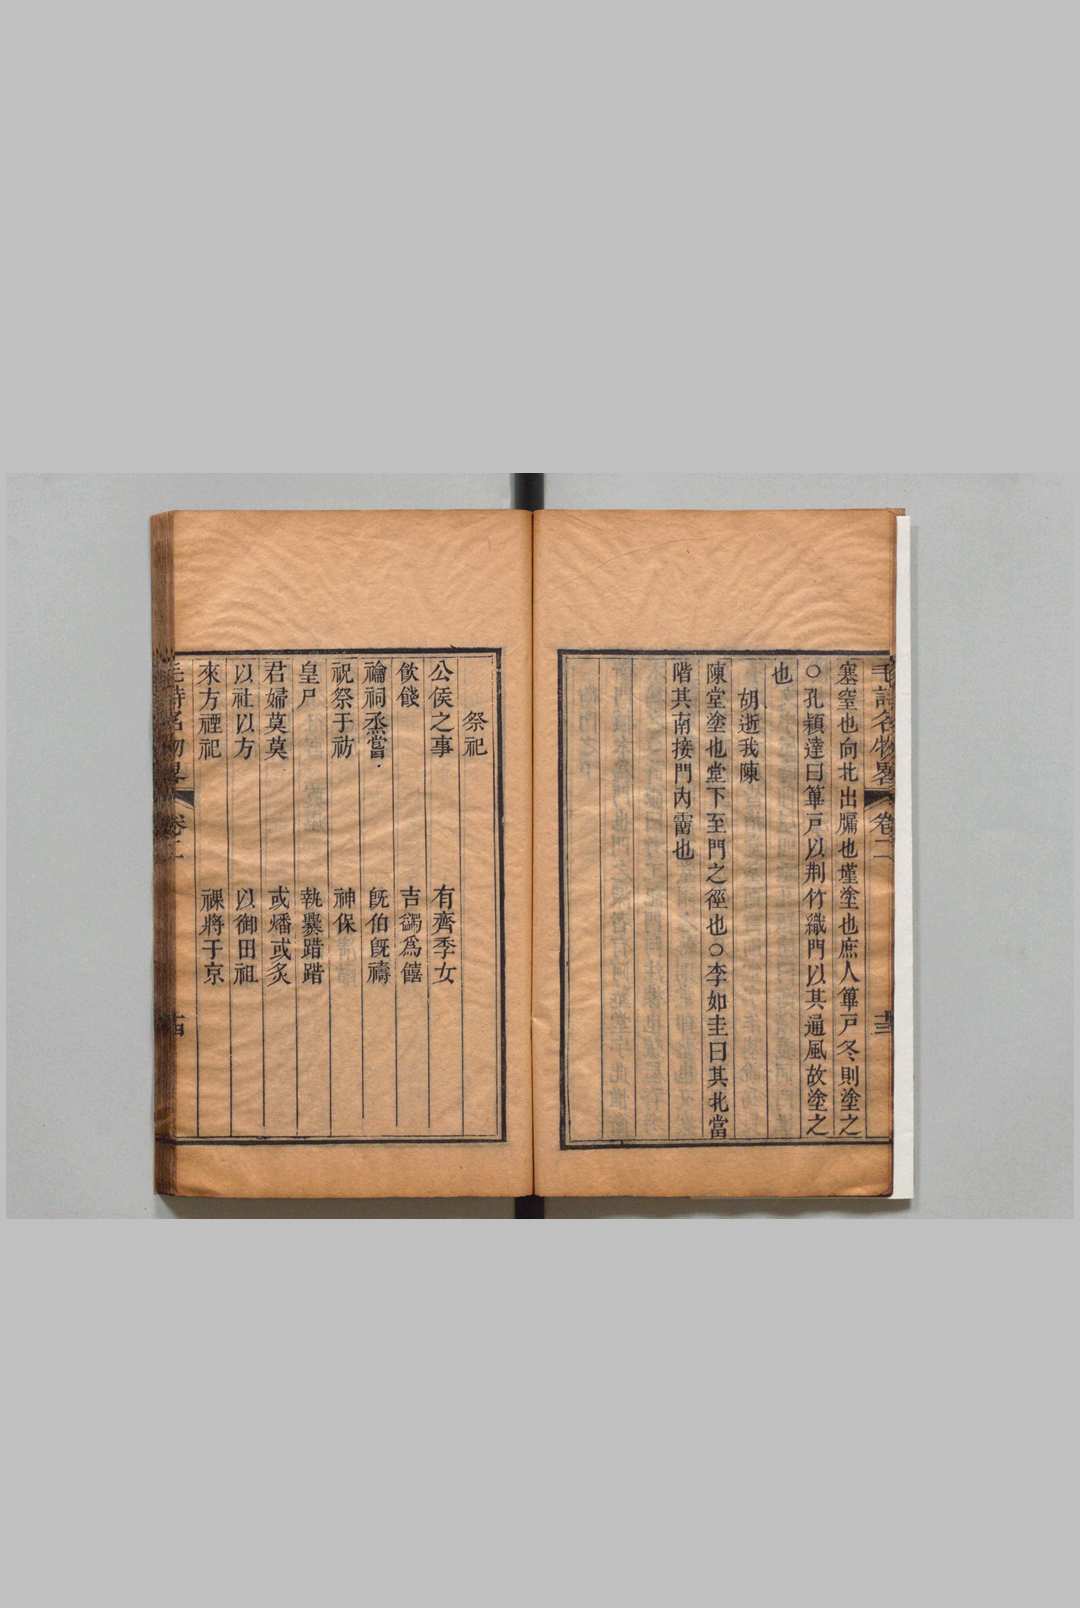 毛詩名物畧 卷二 十三
塞窒也向北出牖也墐塗也庶人篳戸冬則塗之
○孔穎達曰篳戸以荆竹織門以其通風故塗之
也
胡逝我陳
陳堂塗也堂下至門之徑也○李如圭曰其北當
階其南接門內霤也
祭祀
公侯之事 有齊季女
飲餞 吉蠲爲饎
禴祠烝嘗 旣伯旣禱
祝祭于祊 神保
皇尸 執爨踖踖
君婦莫莫 或燔或炙
以社以方 以御田祖
來方禋祀 祼將于京
毛詩名物畧 卷二 十四